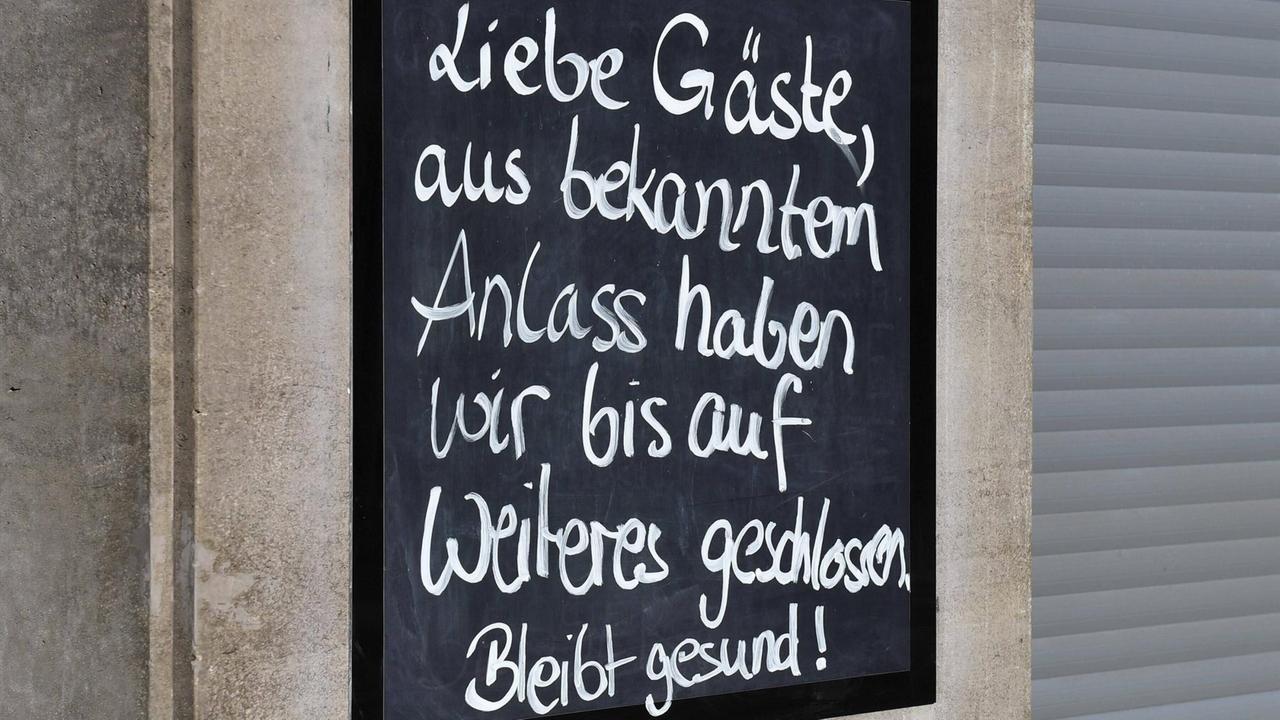 Liebe Gäste,
aus bekanntem
Anlass haben
wir bis auf
Weiteres geschlossen.
Bleibt gesund!